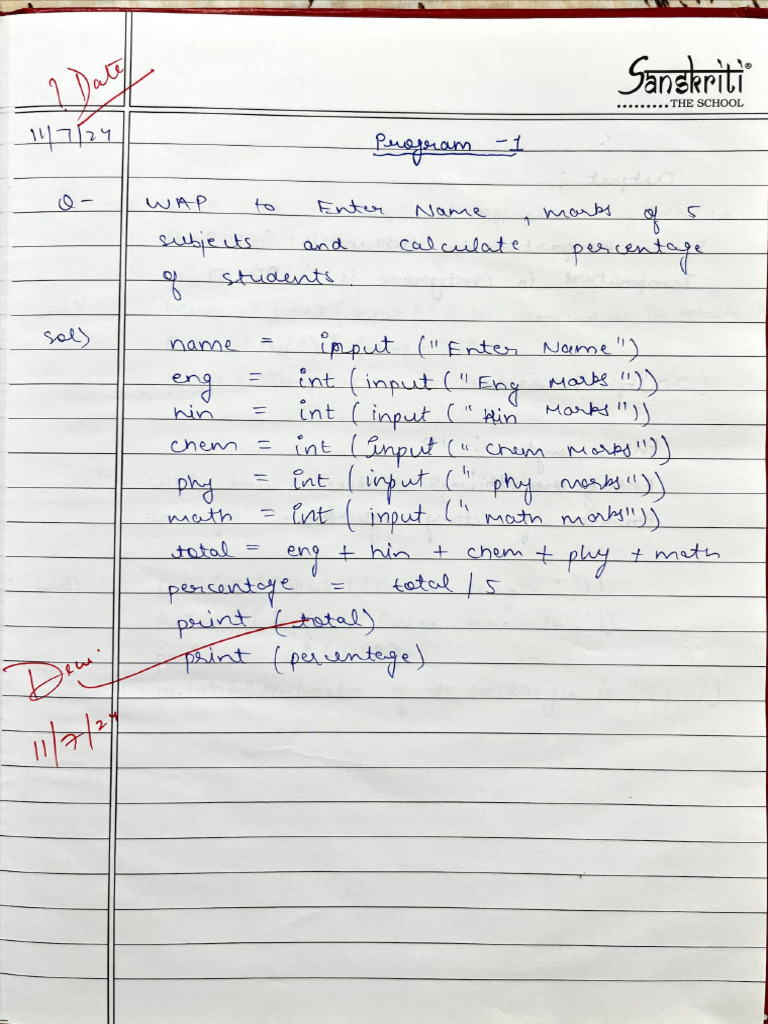 ? Date
Sanskriti®
.........THE SCHOOL
11/7/24
Program - 1
Q- WAP to Enter Name, marks of 5
subjects and calculate percentage
of students.
Sol) name = input ("Enter Name")
eng = int (input ("Eng Marks"))
hin = int (input ("Hin Marks"))
chem = int (input ("Chem Marks"))
phy = int (input ("phy marks"))
math = int (input ("Math marks"))
total = eng + hin + chem + phy + math
percentage = total / 5
print (total)
print (percentage)
11/7/24